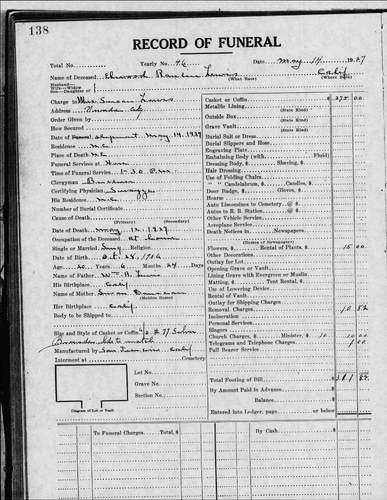 138
RECORD OF FUNERAL
Total No. Yearly No. 46 Date May 14 1927
Name of Deceased Elwood Calif
(What Race) (Where Born)
Husband—
Wife—Widow
Son—Daughter of
Charge to Mrs. Susan
Address Nevada City
Order Given by
How Secured
Date of Funeral Shipment May 14, 1927
Residence N.C.
Place of Death N.C.
Funeral Services at Home
Time of Funeral Service 1-30 P.M.
Clergyman
Certifying Physician
His Residence N.C.
Number of Burial Certificate
Cause of Death
(Primary) (Secondary)
Date of Death May 12, 1927
Occupation of the Deceased at home
Single or Married Sing Religion
Date of Birth Oct 28, 1906
Age 20 Years 6 Months 24 Days
Name of Father W. B.
His Birthplace Calif
Name of Mother Susan
(Maiden Name)
Her Birthplace Calif
Body to be Shipped to
Size and Style of Casket or Coffin Silver
to match
Manufactured by San Calif
Interment at Cemetery
Lot No.
Grave No.
Section No.
Diagram of Lot or Vault
Casket or Coffin $ 275 00
Metallic Lining
(State Kind)
Outside Box
(State Kind)
Grave Vault
(State Kind)
Burial Suit or Dress
Burial Slippers and Hose
Engraving Plate
Embalming Body (with Fluid)
Dressing Body, $ Shaving, $
Hair Dressing
Use of Folding Chairs
" " Candelabrum, $ Candles, $
Door Badge, $ Gloves, $
Hearse
Auto Limousines to Cemetery @ $
Autos to R. R. Station @ $
Other Vehicle Service
Aeroplane Service
Death Notices in Newspapers
(Names of Newspapers)
Flowers, $ Rental of Plants, $ 15 00
Other Decorations
Outlay for Lot
Opening Grave or Vault
Lining Grave with Evergreen or Muslin
Matting, $ Tent Rental, $
Use of Lowering Device
Rental of Vault
Outlay for Shipping Charges
Removal Charges 10 82
Incineration
Personal Services
Singers
Church Charges, $ Minister, $ 10 10 00
Telegrams and Telephone Charges 1 00
Pall Bearer Service
Total Footing of Bill $ 311 82
By Amount Paid in Advance
Balance
Entered into Ledger, page or below
To Funeral Charges Total, $ By Cash $